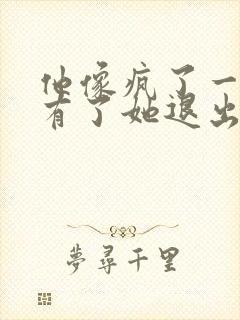 他像疯了一
有了她退出
夢尋千里